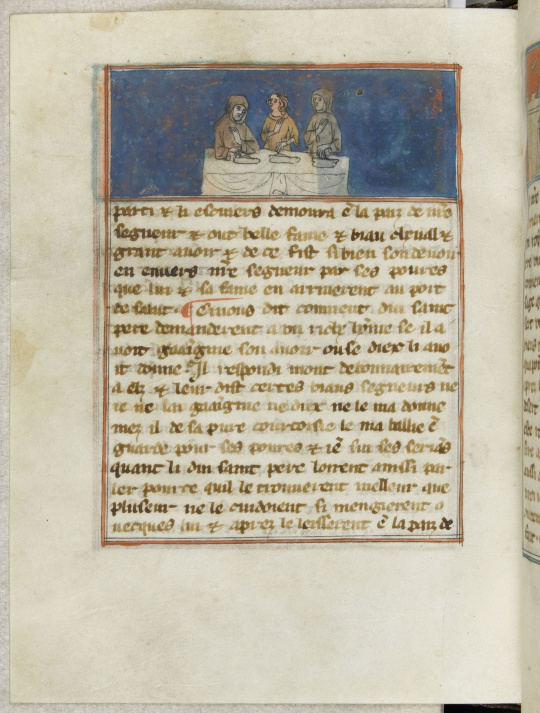 parti & li escuiers demoura ē la pais de nr̄e
segneur & out belle fame & biau cheual &
grant auoir & de ce fist si bien son deuoir
en enuers nr̄e segneur par ses poures
que lui & sa fame en arriuerent au port
de salut ¶ Ci nous dit coment dui saint
pere demanderent a un riche hōme se il a
uoit gaaigne son auoir ou se diex li auo
it donne Il respondi mout debonnairemēt
a elz & leur dist certes biaus segneurs ne
ie ne lai gaaigne ne diex ne le ma donne
mez il de sa pure courtoisie le ma baillie ē
guarde pour ses poures & iē sui ses seriās
quant li dui saint pere loirent ainssi par
ler pour ce quil le trouuerent meilleur que
pluseur ne le cuidoient si mengierent o
uecques lui & aprez le lessierent ē la pais de